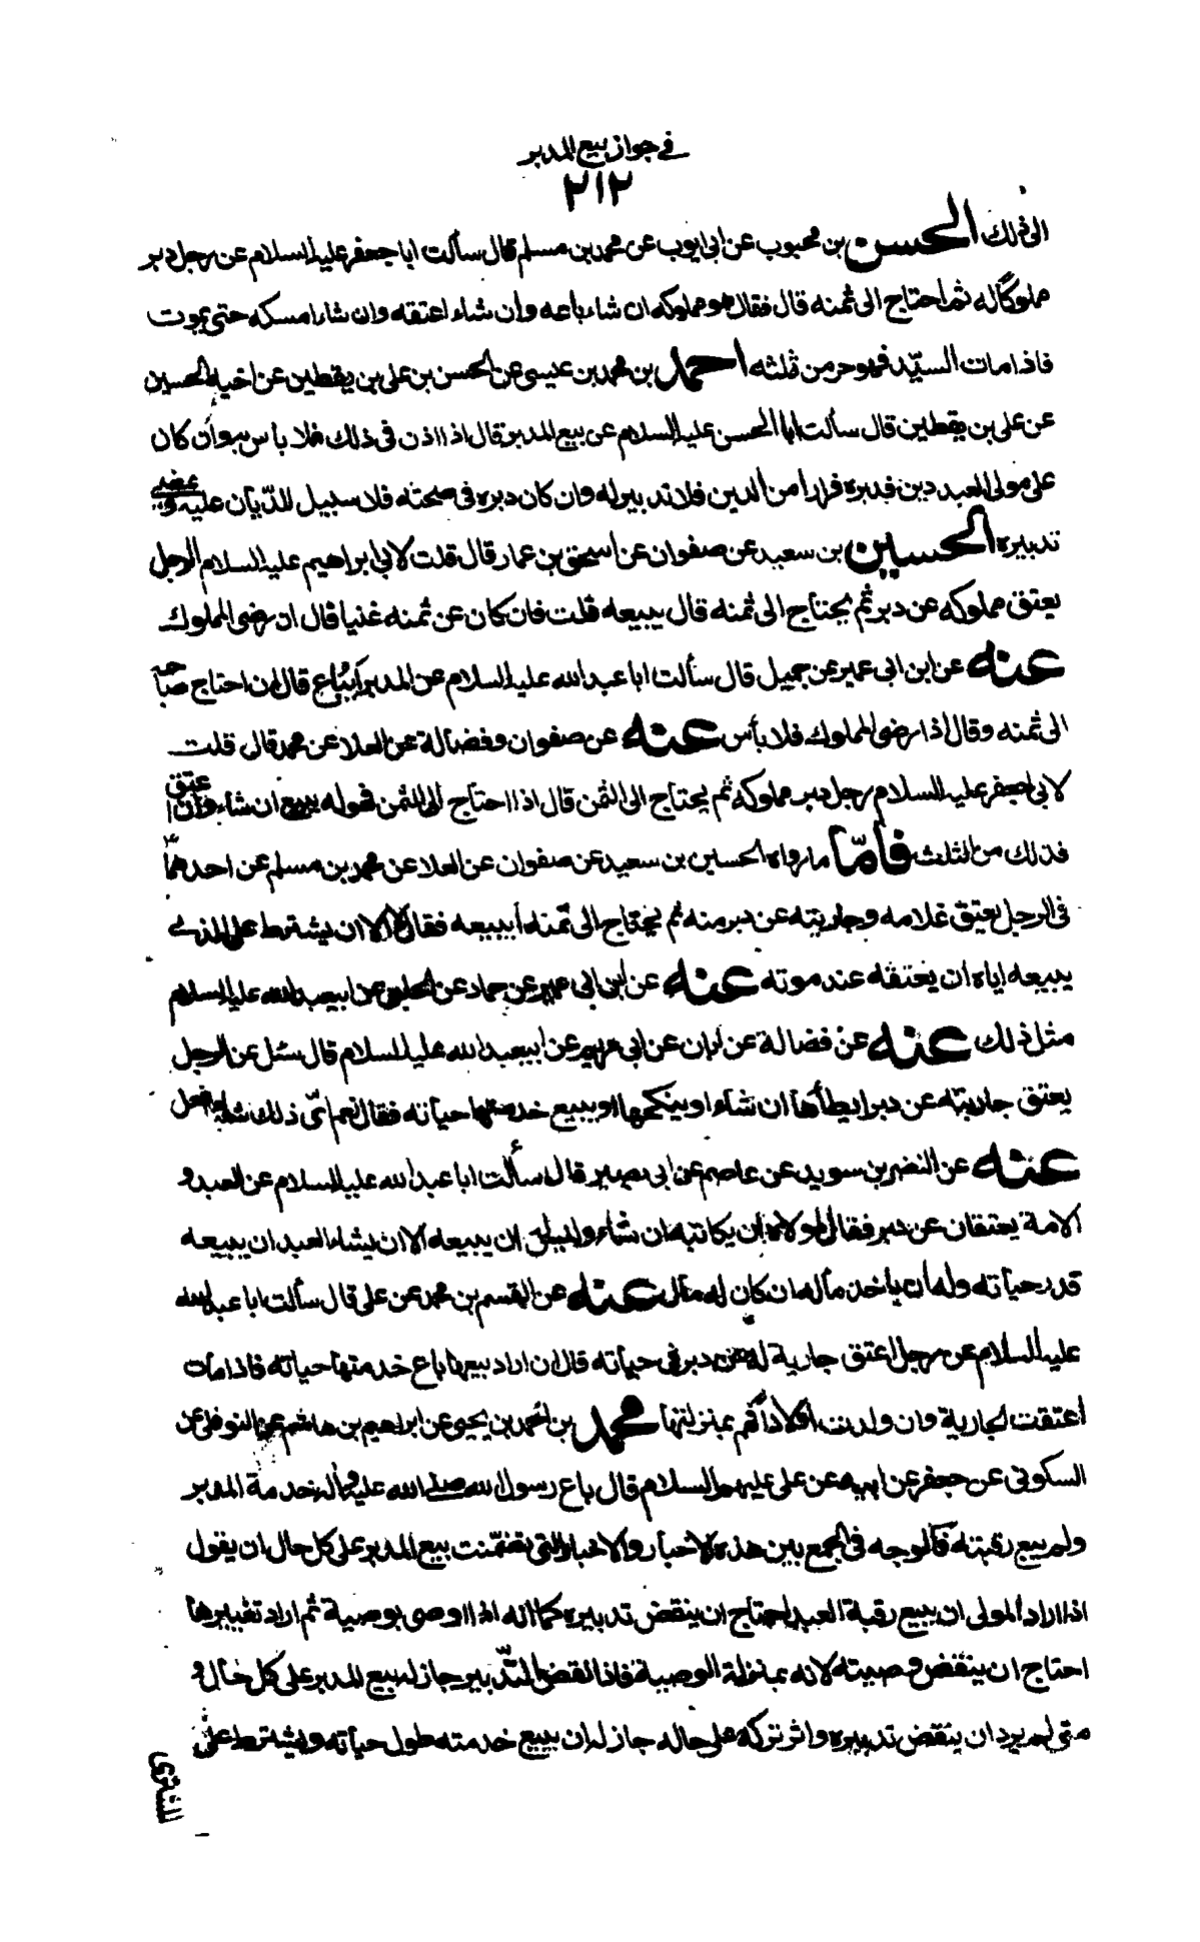 في جواز بيع المدبر
٢١٢
الى ذلك الحسن بن محبوب عن ابى ايوب عن محمد بن مسلم قال سألت ابا جعفر عليه السلام عن رجل دبر
مملوكًا له ثم احتاج الى ثمنه قال فقال هو مملوكه ان شاء باعه وان شاء اعتقه وان شاء امسكه حتى يموت
فاذا مات السيّد فهو حر من ثلثه احمد بن محمد بن عيسى عن الحسن بن على بن يقطين عن اخيه الحسين
عن على بن يقطين قال سألت ابا الحسن عليه السلام عن بيع المدبر قال اذا اذن فى ذلك فلا بأس به وأن كان
على مولى العبد دين فدبره فرارا من الدين فلا تدبير له وان كان دبره فى صحته فلا سبيل للدّيّان عليه ويمضى
تدبيره الحسين بن سعيد عن صفوان عن اسحق بن عمار قال قلت لابى ابراهيم عليه السلام الرجل
يعتق مملوكه عن دبر ثم يحتاج الى ثمنه قال يبيعه قلت فان كان عن ثمنه غنيا قال ان رضى المملوك
عنه عن ابن ابى عمير عن جميل قال سألت ابا عبد الله عليه السلام عن المدبر أيُباع قال ان احتاج صاحبه
الى ثمنه وقال اذا رضى المملوك فلا بأس عنه عن صفوان وفضالة عن العلا عن محمد قال قلت
لابى جعفر عليه السلام رجل دبر مملوكه ثم يحتاج الى الثمن قال اذا احتاج الى الثمن فهو له يبيع ان شاء وان اعتق
فذلك من الثلث فأمّا ما رواه الحسين بن سعيد عن صفوان عن العلا عن محمد بن مسلم عن احدهما
فى الرجل يعتق غلامه وجاريته عن دبر منه ثم يحتاج الى ثمنه أيبيعه فقال لا الا ان يشترط على الذى
يبيعه اياه ان يعتقه عند موته عنه عن ابن ابى عمير عن حماد عن الحلبى عن ابيعبد الله عليه السلام
مثل ذلك عنه عن فضالة عن ابان عن ابى مريم عن ابيعبد الله عليه السلام قال سئل عن الرجل
يعتق جاريته عن دبر ايطأها ان شاء او ينكحها او يبيع خدمتها حياته فقال نعم اىّ ذلك شاء فعل
عنه عن النضر بن سويد عن عاصم عن ابى بصير قال سألت ابا عبد الله عليه السلام عن العبد و
الامة يعتقان عن دبر فقال لمولاه ان يكاتبه ان شاء وليس له ان يبيعه الا ان يشاء العبد ان يبيعه
قدر حياته وله ان ياخذ ماله ان كان له مال عنه عن القسم بن محمد عن على قال سألت ابا عبد الله
عليه السلام عن رجل اعتق جارية له عن دبر فى حياته قال ان اراد بيعها باع خدمتها حياته فاذا مات
اعتقت الجارية وان ولدت اولادا فهم بمنزلتها محمد بن احمد بن يحيى عن ابراهيم بن هاشم عن النوفلى عن
السكونى عن جعفر عن ابيه عن على عليهم السلام قال باع رسول الله صلى الله عليه وآله خدمة المدبر
ولم يبع رقبته فالوجه فى الجمع بين هذه الاخبار والاخبار التى تضمّنت بيع المدبر على كل حال ان يقول
اذا اراد المولى ان يبيع رقبة العبد احتاج ان ينقض تدبيره كما انه اذا اوصى بوصية ثم اراد تغييرها
احتاج ان ينقض وصيته لانه بمنزلة الوصية فاذا نقض التّدبير جاز له بيع المدبر على كل حال و
متى لم يرد ان ينقض تدبيره واثر تركه على حاله جاز له ان يبيع خدمته طول حياته ويشترط على
المشترى